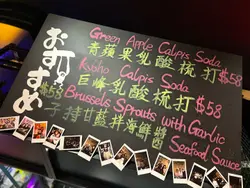 おすすめ
Green Apple Calpis Soda
青蘋果乳酸梳打 $58
Kyoho Calpis Soda
巨峰乳酸梳打 $58
$58 Brussels Sprouts with Garlic
Seafood Sauce
子持甘藍拌海鮮醬